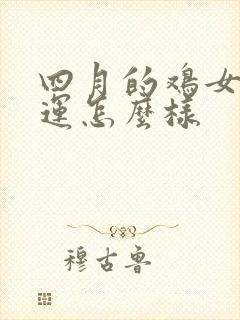 四月的鸡女
运怎麼样
穆古鲁